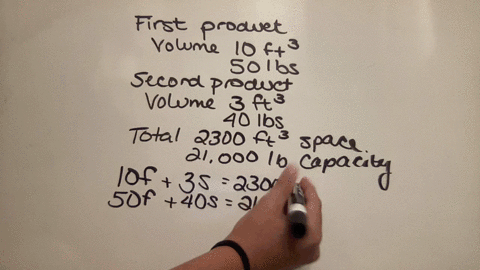 First product
Volume 10 ft³
50 lbs
Second product
Volume 3 ft³
40 lbs
Total 2300 ft³ space
21,000 lb capacity
10f + 3s = 2300
50f + 40s = 21